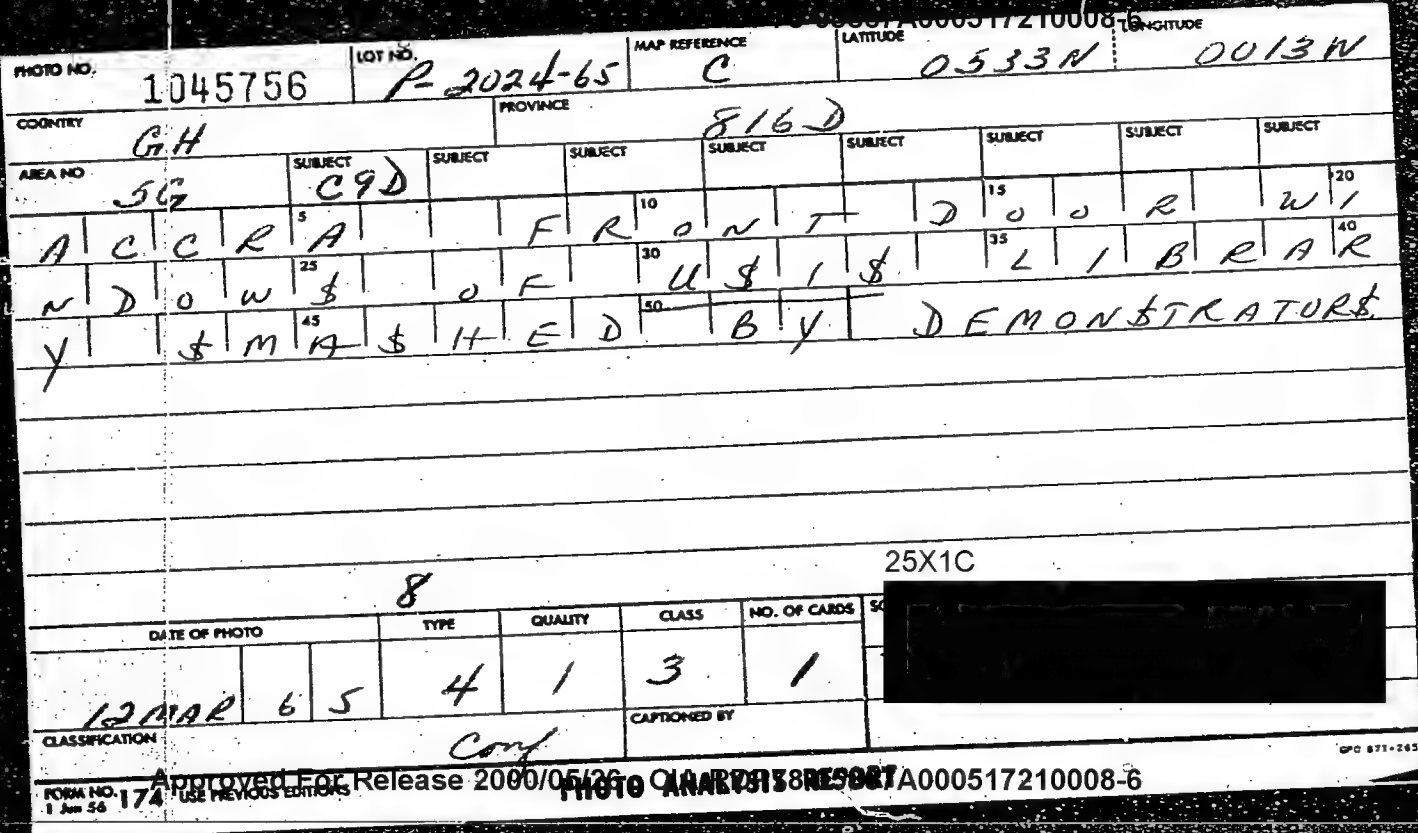 A000517210008-6
PHOTO NO. 1045756 LOT NO. P-2024-65 MAP REFERENCE C LATITUDE 0533N LONGITUDE 0013W
COUNTRY GH PROVINCE 816D
AREA NO 5G SUBJECT C9D SUBJECT SUBJECT SUBJECT SUBJECT SUBJECT SUBJECT SUBJECT
5 10 15 20
ACCRA FRONT DOOR WI
25 30 35 40
NDOW$ OF U$I$ LIBRAR
45 50
Y $MA$HED BY DEMON$TRATOR$
25X1C
8
DATE OF PHOTO TYPE QUALITY CLASS NO. OF CARDS
12 MAR 65 4 1 3 1
CLASSIFICATION Conf CAPTIONED BY
GPO 871-265
FORM NO. 174 USE PREVIOUS EDITIONS PHOTO ANALYSIS REPORT
1 Jun 56
Approved For Release 2000/05/26 : A000517210008-6